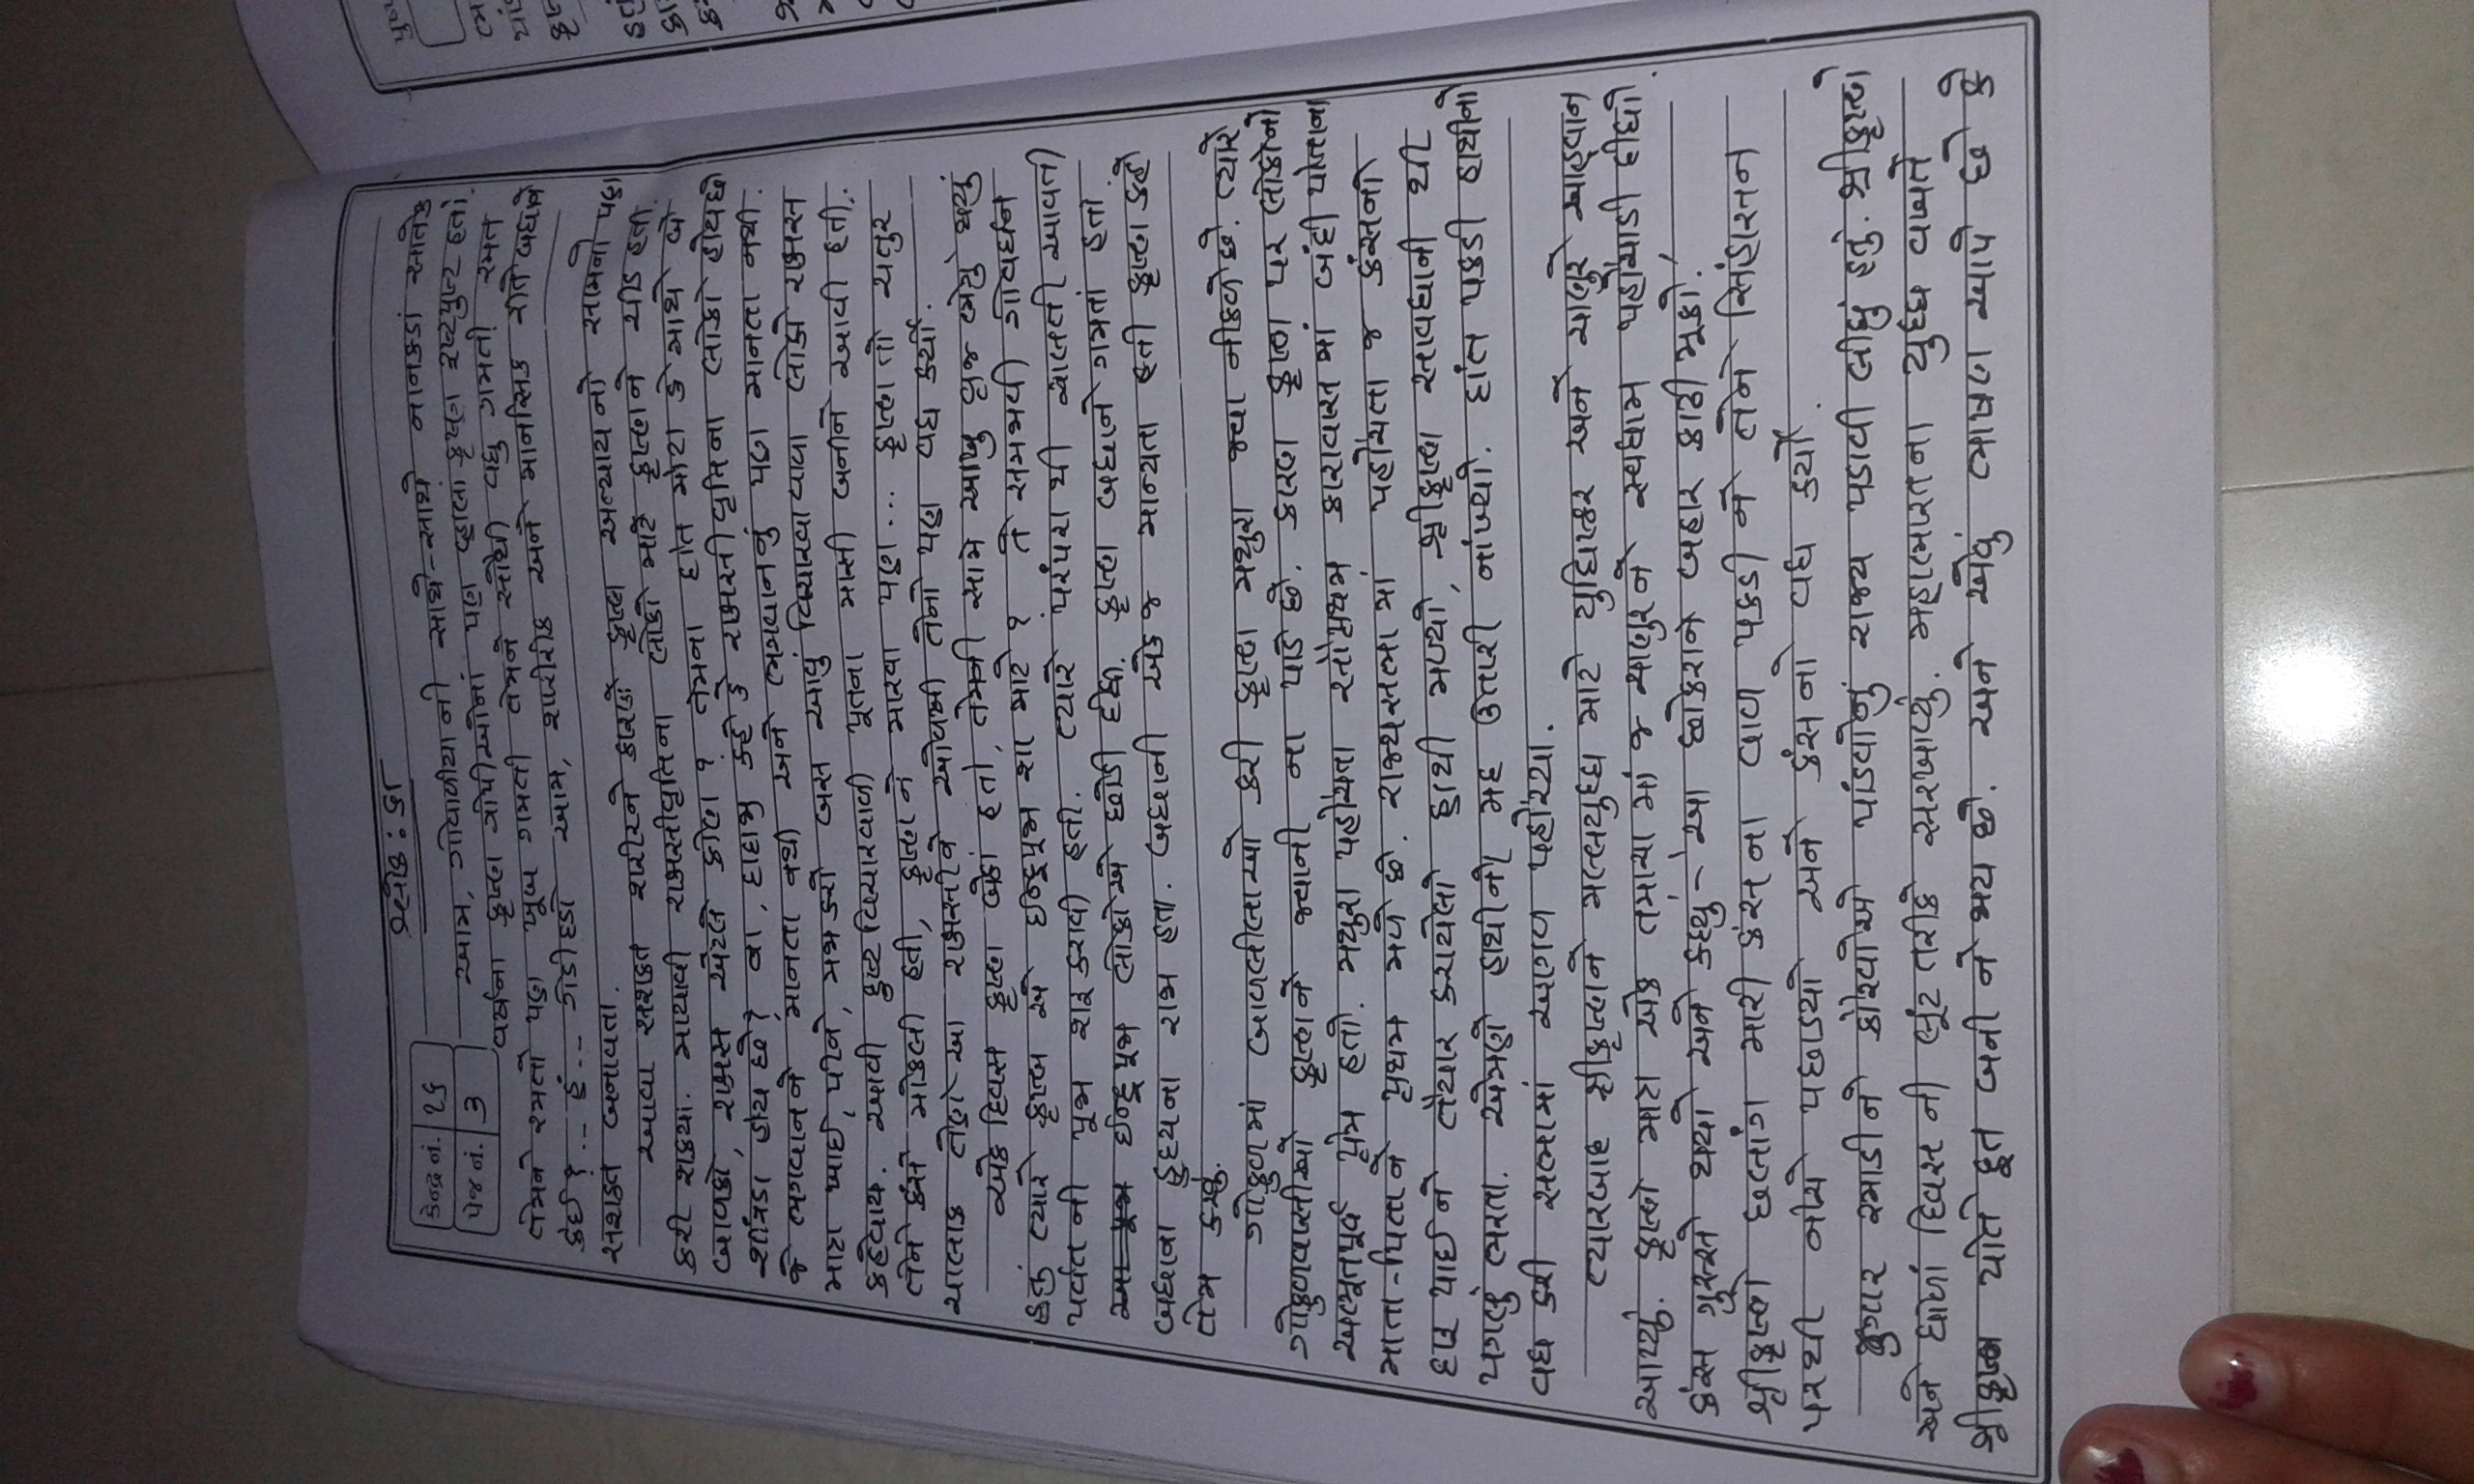 શ્લોક : ૬૧
કેન્દ્ર નં. ૨૬
પેજ નં. 3
આમ, ગોવાળીયાની સાથે-સાથે નાનકડાં સાતેક
વર્ષના કૃષ્ણ ગોપીઓનાં પણ વ્હાલાં કૃષ્ણ હૃષ્ટપુષ્ટ હતાં.
તેમને રમતો પણ ખૂબ ગમતી તેમને સૌથી વધુ ગમતી રમત
કઈ ? -- હં -- ગેડીદડો આમ, શારીરીક અને માનસિક રીતે બધાને
સશક્ત બનાવતા.
આવા સશક્ત શરીરને કારણે કૃષ્ણ અન્યાયનો સામનો પણ
કરી શક્યા. માયાવી રાક્ષસીવૃત્તિના લોકો માટે કૃષ્ણને ચીડ હતી.
બાળકો, રાક્ષસ એટલે કોણ ? તેમના દાંત મોટા કે માથે બે
શીંગડા હોય છે ? ના, દાદાજી કહે કે રાક્ષસીવૃત્તિના લોકો હોય છે
જે ભગવાનને માનતા નથી અને ભગવાનનું પણ માનતા નથી.
માત્ર ખાઈ, પીને, મજા કરો બસ આવું વિચારવાવાળા લોકો રાક્ષસ
કહેવાય. આવી દુષ્ટ વિચારવાળી પૂતના માસી બનીને આવી હતી.
તેને કંસે મોકલી હતી, કૃષ્ણને મારવા પણ... કૃષ્ણ તો ચતુર
ચાલાક તેણે આ રાક્ષસીને ઓળખી તેનો પણ વધ કર્યો.
એક દિવસ કૃષ્ણ બેઠાં હતાં, તેમની સામે આખુ વૃજ ભેગું થયું
હતું ત્યારે કૃષ્ણ એ ઈન્દ્રપૂજા શા માટે ? તે સમજાવી ગોવર્ધન
પર્વતની પૂજા શરૂ કરાવી હતી. ત્યારે પરંપરાથી ચાલતી આવતી
ઈન્દ્રપૂજા લોકોએ છોડી દીધી. કૃષ્ણ બધાને ગમતાં હતા
બધાના હૃદયના રાજા હતા. બધાની એક જ માન્યતા હતી કૃષ્ણ કહે
તેમ કરવું.
ગોકુળમાં બાળલીલાઓ કરી કૃષ્ણ મથુરા જવા નીકળે છે. ત્યારે
ગોકુળવાસીઓ કૃષ્ણને જવાની ના પાડે છે. કારણ કૃષ્ણ પર લોકોનો
અભૂતપૂર્વ પ્રેમ હતો. મથુરા પહોંચતા સૌપ્રથમ કારાવાસમાં બંદી પોતાના
માતા-પિતાને પ્રથમ મળે છે. રાજ્યસભામાં પહોંચતા જ કંસનો
દારૂ પાઈને તૈયાર કરાયેલો હાથી મળ્યો, શ્રીકૃષ્ણ સાવધાની થી
પગલું ભરતા. એમણે હાથીનો મદ ઉતારી નાંખ્યો. દાંત પકડી હાથીનો
વધ કરી સભામાં આગળ પહોંચ્યા.
ત્યારબાદ શ્રીકૃષ્ણને મલ્લયુદ્ધ માટે યુધિષ્ઠર અને ચાણુરે આહ્વાન
આપ્યું. કૃષ્ણે માત્ર એક તમાચા માં જ ચાણુરને સ્વધામ પહોંચાડી દીધો.
કંસ ગુસ્સે થયો અને કહ્યું - 'આ છોકરાને બહાર કાઢી મૂકો.'
શ્રીકૃષ્ણે છલાંગ મારી કંસના વાળ પકડી ને તેને સિંહાસન
પરથી નીચે પછાડયો અને કંસનો વધ કર્યો.
જુગાર રમાડીને કૌરવોએ પાંડવોનું રાજ્ય પડાવી લીધું હતું. શ્રીકૃષ્ણે
અને ધોળાં દિવસની લૂંટ તરીકે સરખાવ્યું. મહાભારતના યુદ્ધ વખતે
શ્રીકૃષ્ણ પોતે દૂત બની ને જાય છે. અને એવું ભાષણ આપે છે કે